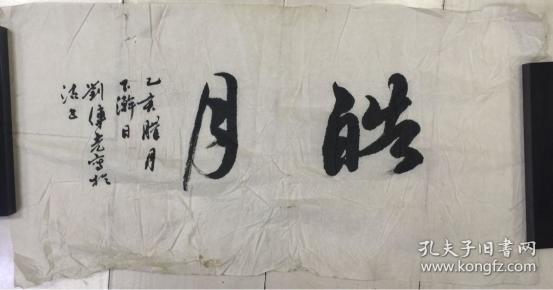 皓月
乙亥腊月
下澣日
劉傳光写於
孔夫子旧书网
www.kongfz.com